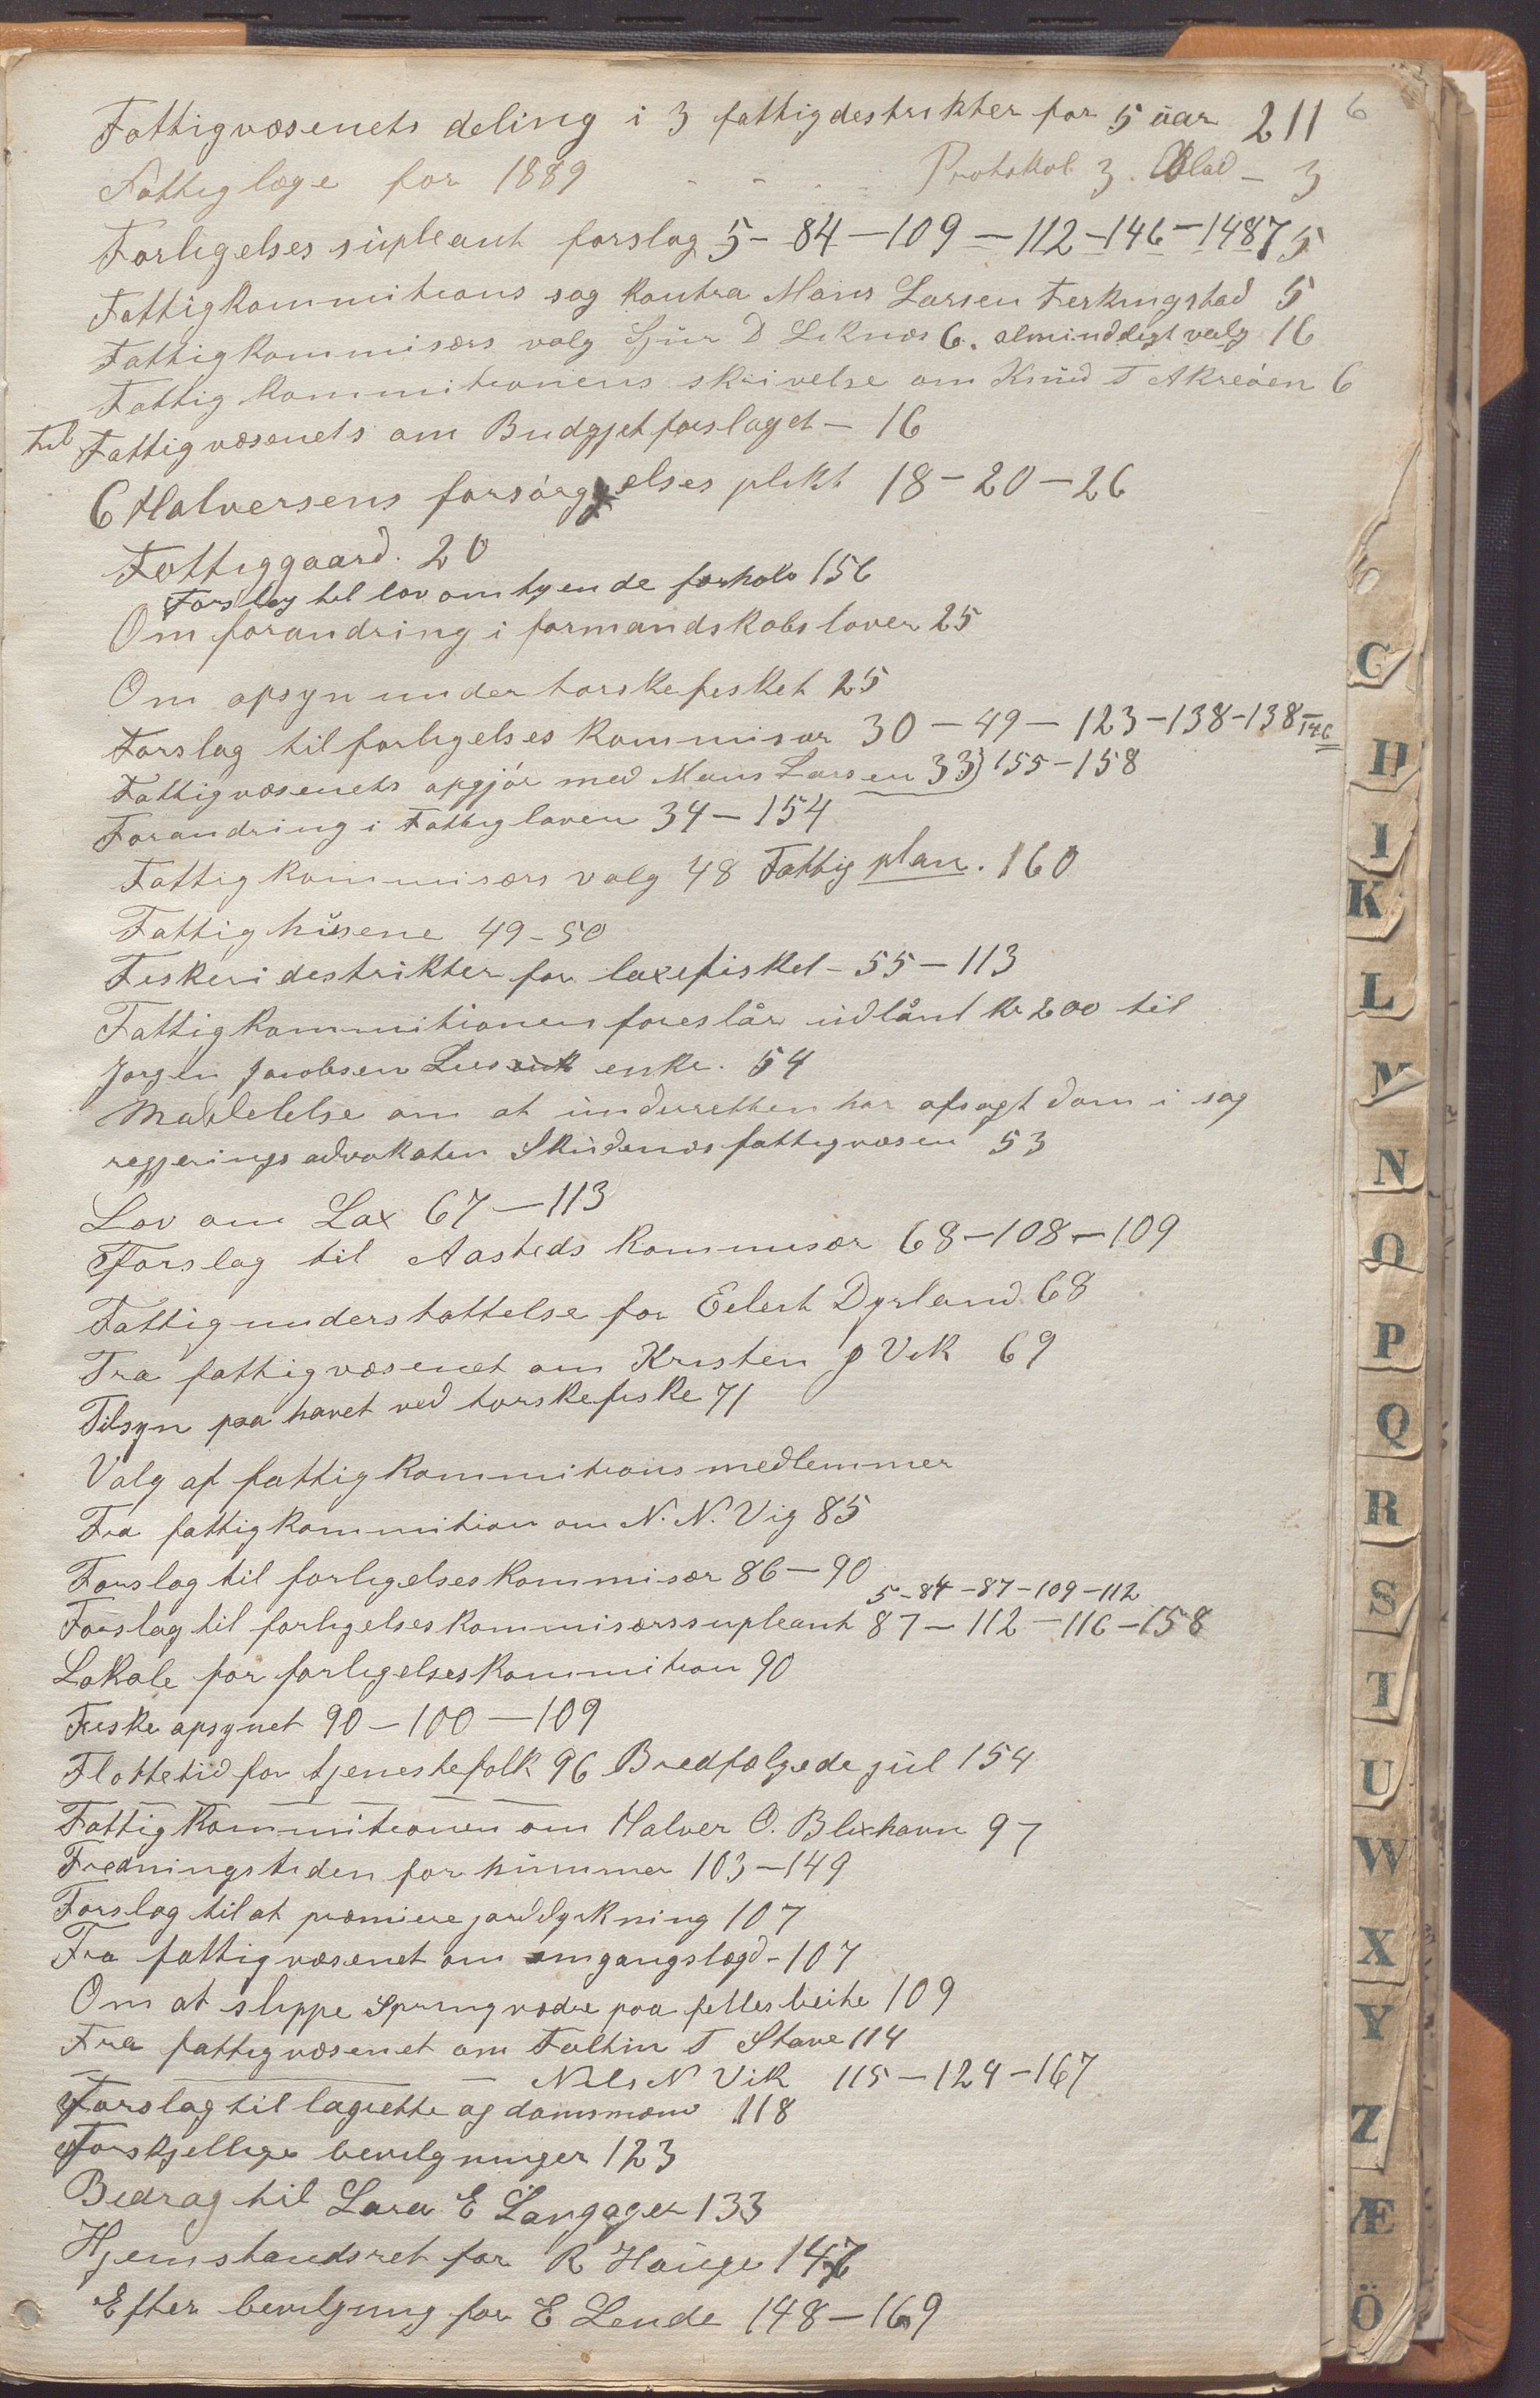 Fattigvæsenets deling i 3 fattigdestrikter for 5 aar 211
6
Fattiglæge for 1889 - - - Protokol 3. Blad - 3
Forligelses supleant forslag 5 - 84 - 109 - 112 - 146 - 148 75
Fattigkommitions sag kontra Mons Larsen Ferkingstad 5
Fattigkommisærs valg Sjur D Liknes 6. alminddegt valg 16
Fattigkommitionens skrivelse om Knud T Akreøen 6
til Fattigvæsenets om Budgjetforslaget - 16
C Halversens forsørgelses plikt 18 - 20 - 26
Fattiggaard. 20
Forslag til lov om tyende forhold 156
Om forandring i formandskabslover 25
Om opsyn under torskefisket 25
Forslag til forligelses kommisær 30 - 49 - 123 - 138 - 138 - 146
Fattigvæsenets opgjør med Mons Larsen 33) 155 - 158
Forandring i Fattigloven 34 - 154
Fattigkommisærs valg 48 Fattig plan. 160
Fattighusene 49 - 50
Fiskeridestrikter for laxefisket - 55 - 113
Fattigkommitionen foreslår udlånt kr 200 til
Jørgen Jacobsen enke. 54
Meddelelse om at underretten har afsagt dom i sag
regjerings advokaten Skudenæs fattigvæsen 53
Lov om Lax 67 - 113
Forslag til Aasteds kommisær 68 - 108 - 109
Fattigunderstøttelse for Eilert Dyrland 68
Fra fattigvæsenet om Kristen J Vik 69
Tilsyn paa havet ved torskefiske 71
Valg af fattigkommitionsmedlemmer
Fra fattigkommition om N. N. Vig 85
Forslag til forligelseskommisær 86 - 90
5 - 84 - 87 - 109 - 112
Forslag til forligelseskommisærssupleant 87 - 112 - 116 - 158
Lokale for forligelseskommition 90
Fiske opsynet 90 - 100 - 109
Flottetid for tjenestefolk 96 Bredfælgede jul 154
Fattigkommitionen om Halver O. Blixhavn 97
Fredningstiden for hummer 103 - 149
Forslag til at præmiere jorddyrkning 107
Fra fattigvæsenet om omgangslægd - 107
Om at slippe Springvædre paa felles beite 109
Fra fattigvæsenet om Faltin T Stave 114
Nils N Vik 115 - 124 - 167
Forslag til lagrette og domsmænd 118
Forskjellige bevilgninger 123
Bidrag til Lara E Langager 133
Hjemstandsret for R Hauge 147
Efter bevilgning for E Lende 148 - 169
C
H
I
K
L
M
N
O
P
Q
R
S
T
U
W
X
Y
Z
Æ
Ö